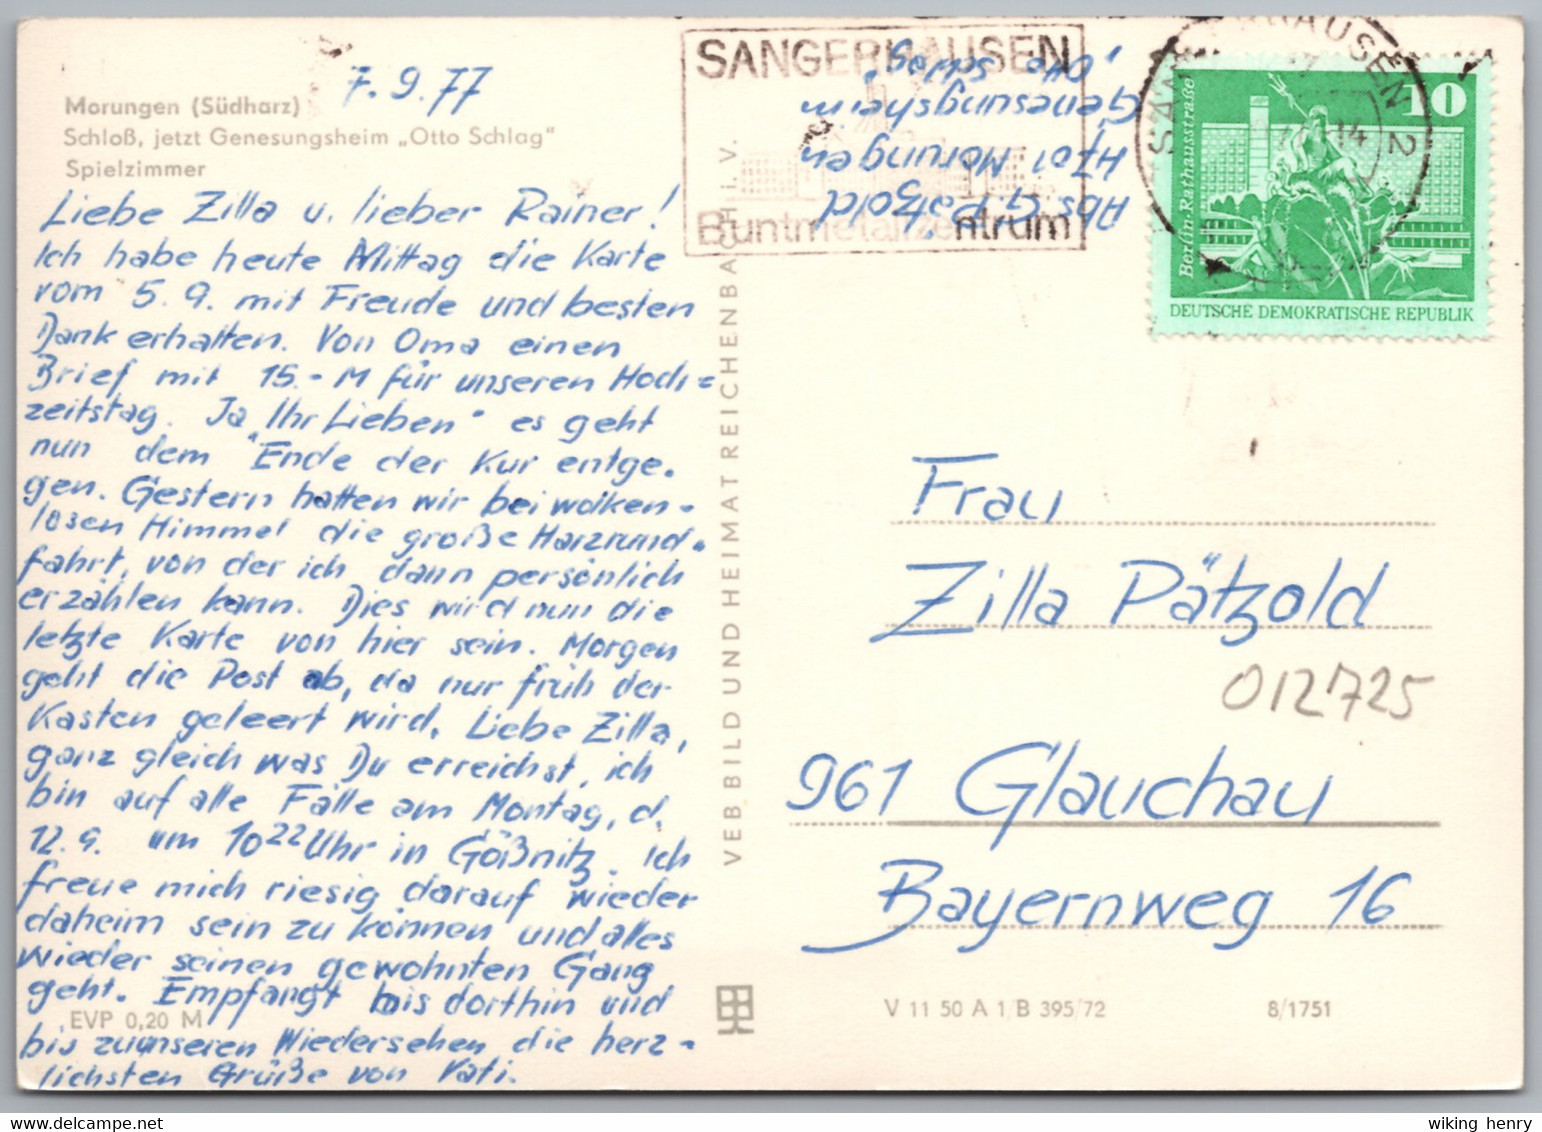 7.9.77
Morungen (Südharz)
Schloß, jetzt Genesungsheim „Otto Schlag"
Spielzimmer
Liebe Zilla u. lieber Rainer!
Ich habe heute Mittag die Karte
vom 5.9. mit Freude und besten
Dank erhalten. Von Oma einen
Brief mit 15.-M für unseren Hoch=
zeitstag. Ja „Ihr Lieben" es geht
nun dem Ende der Kur entge-
gen. Gestern hatten wir bei wolken-
losen Himmel die große Harzrund-
fahrt, von der ich dann persönlich
erzählen kann. Dies wird nun die
letzte Karte von hier sein. Morgen
geht die Post ab, da nur früh der
Kasten geleert wird. Liebe Zilla,
ganz gleich was Du erreichst, ich
bin auf alle Fälle am Montag, d.
12.9. um 10²² Uhr in Gößnitz. Ich
freue mich riesig darauf wieder
daheim sein zu können und alles
wieder seinen gewohnten Gang
geht. Empfangt bis dorthin und
bis zu unseren Wiedersehen die herz-
lichsten Grüße von Vati.
EVP 0,20 M
VEB BILD UND HEIMAT REICHENBACH i. V.
SANGERHAUSEN
Buntmetallzentrum
Abs. G. Pätzold
4701 Morungen
Genesungsheim
„Otto Schlag"
SANGERHAUSEN 2
10
Berlin-Rathausstraße
DEUTSCHE DEMOKRATISCHE REPUBLIK
Frau
Zilla Pätzold
012725
961 Glauchau
Bayernweg 16
V 11 50 A 1/B 395/72
8/1751
wiking henry